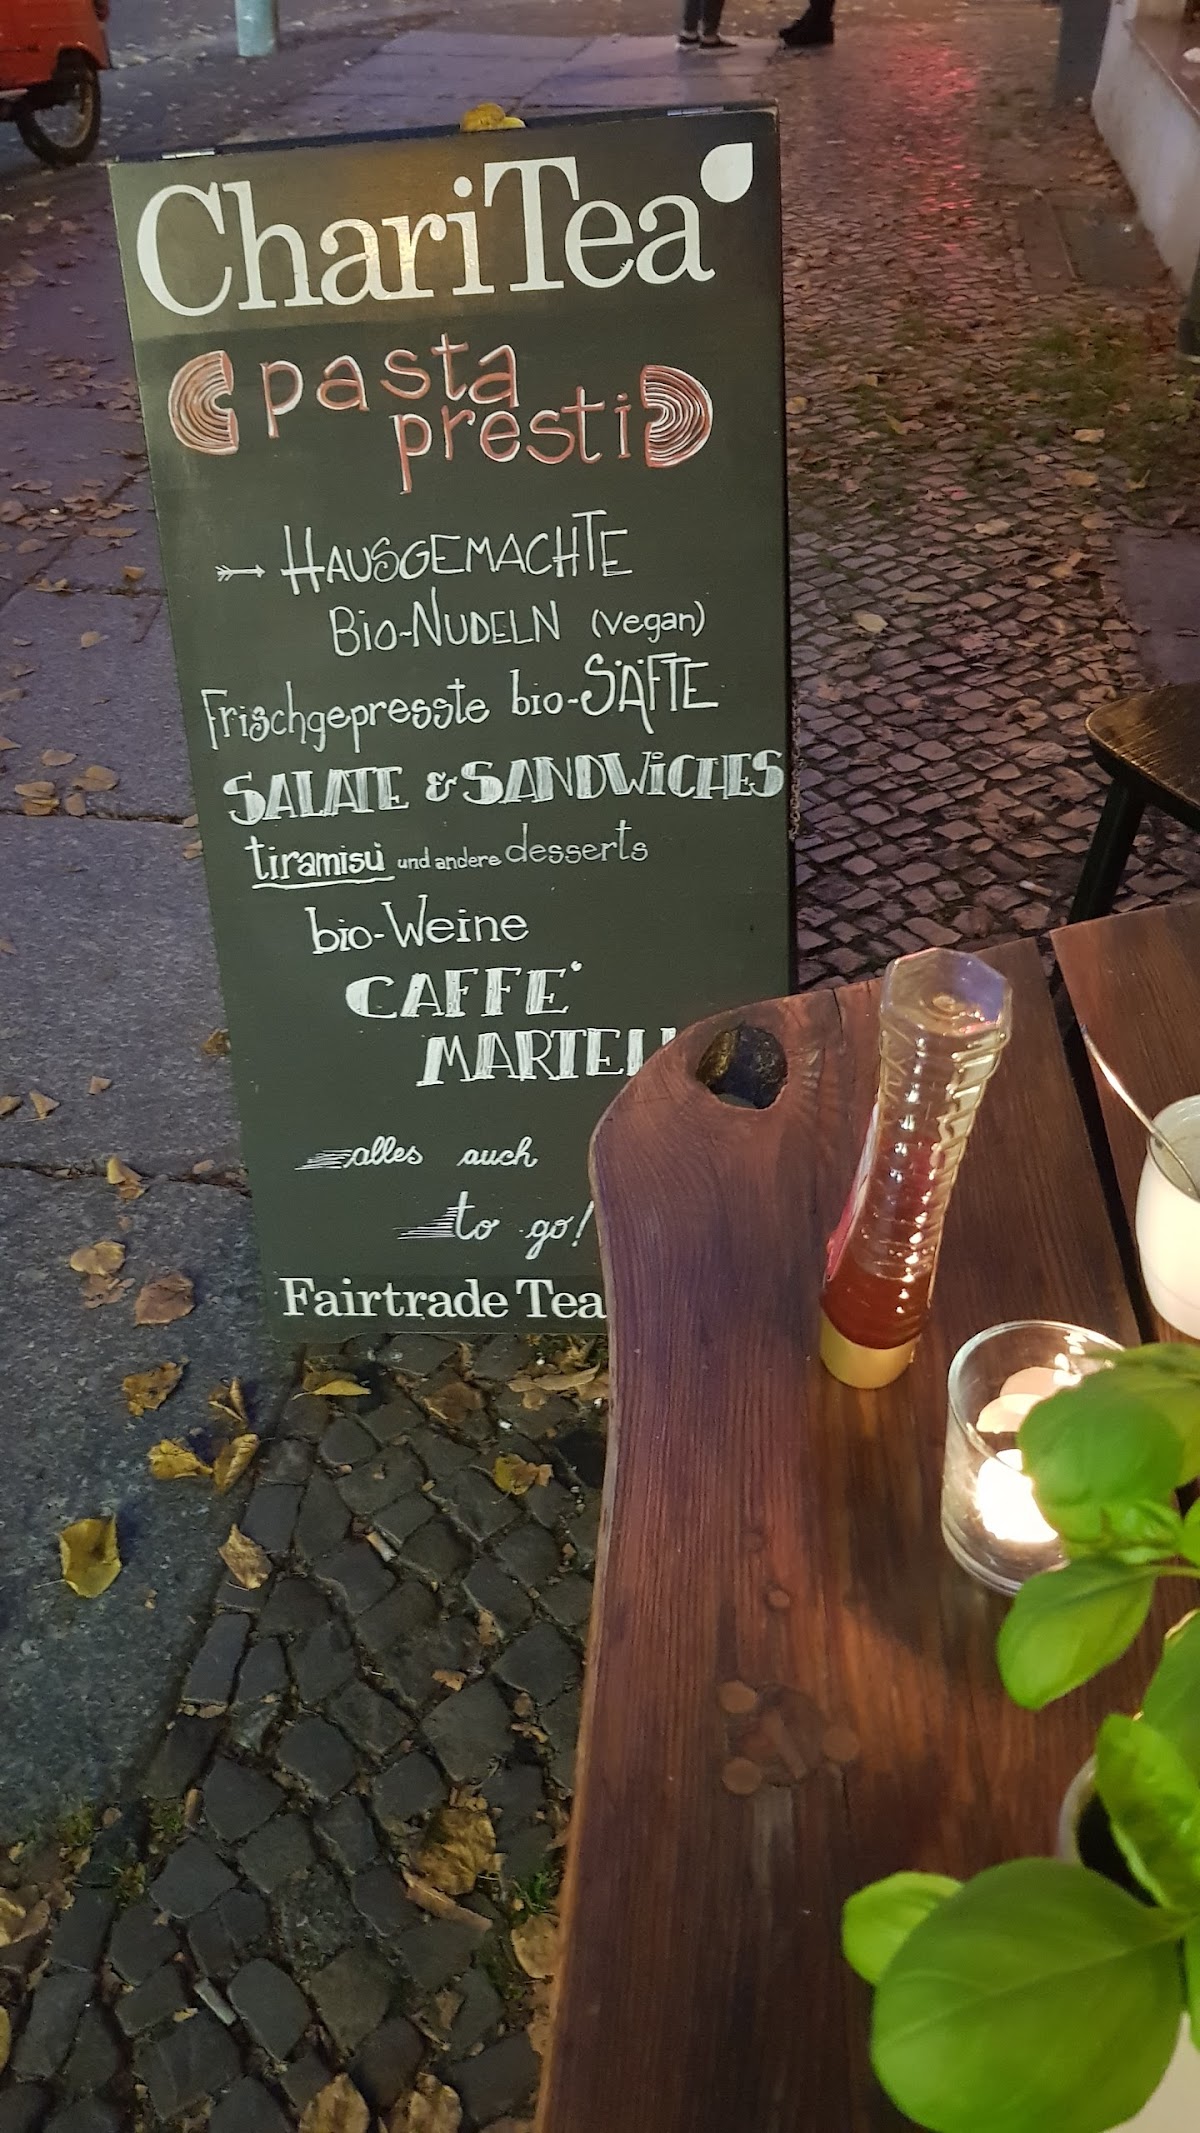 ChariTea
pasta
presti
HAUSGEMACHTE
BIO-NUDELN (vegan)
Frischgepresste bio-SÄFTE
SALATE & SANDWiCHES
tiramisù und andere desserts
bio-Weine
CAFFE'
alles auch
to go!
Fairtrade Tea